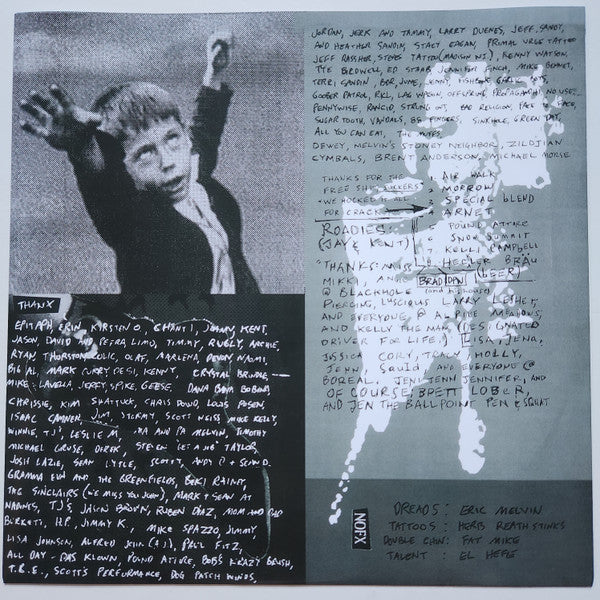 THANX
EPITAPH, ERIN, KIRSTEN O, CHANTI, JOHNN, KENT,
JASON, DAVID PETRA LIMO, TIMMY, RUELY, ARCHIE,
RYAN, THURSTON OLAF, MARLENA, DEVON, NAOMI,
BIG AL, MARK CURRY, DESI, KENNY, CRYSTAL BRUNDLE
MIKE LAVELLA, JERRY, SPIKE, GEESE. DANA BOBINA
CHRISSIE, KIM SHATTUCK, CHRIS DOWD, LOUIS POSEN,
ISAAC JIM, STORMY, SCOTT WEISS, MIKE KELLY,
WINNIE, TJ'S, LESLIE M, MA AND PA MELVIN, TIMOTHY
MICHAEL CRUSE, DEREK, STEVEN TAYLOR,
JOSH LAZIE, SEAN LYTLE, SCOTT, ANDY
GRAMMA EVN AND THE GREENFIELDS, BEKI RAINY,
THE SINCLAIRS (WE MISS YOU KEN), MARK + SEAN AT
TJ'S JASON BROWN, RUBEN DIAZ, MOM AND DAD
BURKETT, H.P., JIMMY K, MIKE SPAZZO, JIMMY,
LISA JOHNSON, ALFRED PAUL FITZ,
ALL DAY - DAS KLOWN, POUND ATTIRE, BOB'S KRAZY BRUSH,
T.R.E., SCOTT'S PERFORMANCE, DOG PATCH WINOS,
JORDAN, JERK AND TAMMY, LARRY DUENES, JEFF, SANDY,
AND HEATHER SANDIN, STACY EAGAN, PRIMAL URGE TATTOO
JEFF RASSIER, STEVES TATTOO (MADISON WI), KENNY WATSON,
PETE BIRDWELL, ED STARR JENNIFER FINCH, MIKE BENNET,
TERRI GANDIN, BOB JUNE, FISHBONE
GOOBER PATROL, RKL, LAG WAGON, OFFSPRING, PROPAGANDHI, NO USE,
PENNYWISE, RANCID, STRUNG OUT, BAD RELIGION, FACE TO FACE,
SUGAR TOOTH, VANDALS, BS FINGERS, SINKHOLE, GREEN DAY,
ALL YOU CAN EAT, THE MUFFS.
DEWEY, MELVIN'S STONEY NEIGHBOR, ZILDJIAN
CYMBALS, BRENT ANDERSON, MICHAEL MORSE
THANKS FOR THE 1. AIR WALK
FREE SHIT 2. MORROW
WE HOCKED IT ALL 3. SPECIAL BLEND
FOR CRACK 4. ARNET
ROADIES: 5. POUND ATTIRE
(JAY & KENT) 6. SNOW SUMMIT
7. KELLI CAMPBELL
8. HEFLER BRÄU
(BEER)
THANKS: MISS
MIKKI, BRAD/DPN
@ BLACKHOLE
PIERCING, LUSCIOUS LARRY
AND EVERYONE @ ALPINE MEADOWS,
AND KELLY THE MAN, (DESIGNATED
DRIVER FOR LIFE,) LISA, JENA,
JESSICA CORY, TRACY, HOLLY,
JENN SQUID AND EVERYONE @
BOREAL, JENI JENN JENNIFER, AND
OF COURSE, BRETT LOBER,
AND JEN THE BALLPOINT PEN & SQUAT
NOFX
DREADS: ERIC MELVIN
TATTOOS: HERB REATH STINKS
DOUBLE CHIN: FAT MIKE
TALENT: EL HEFE